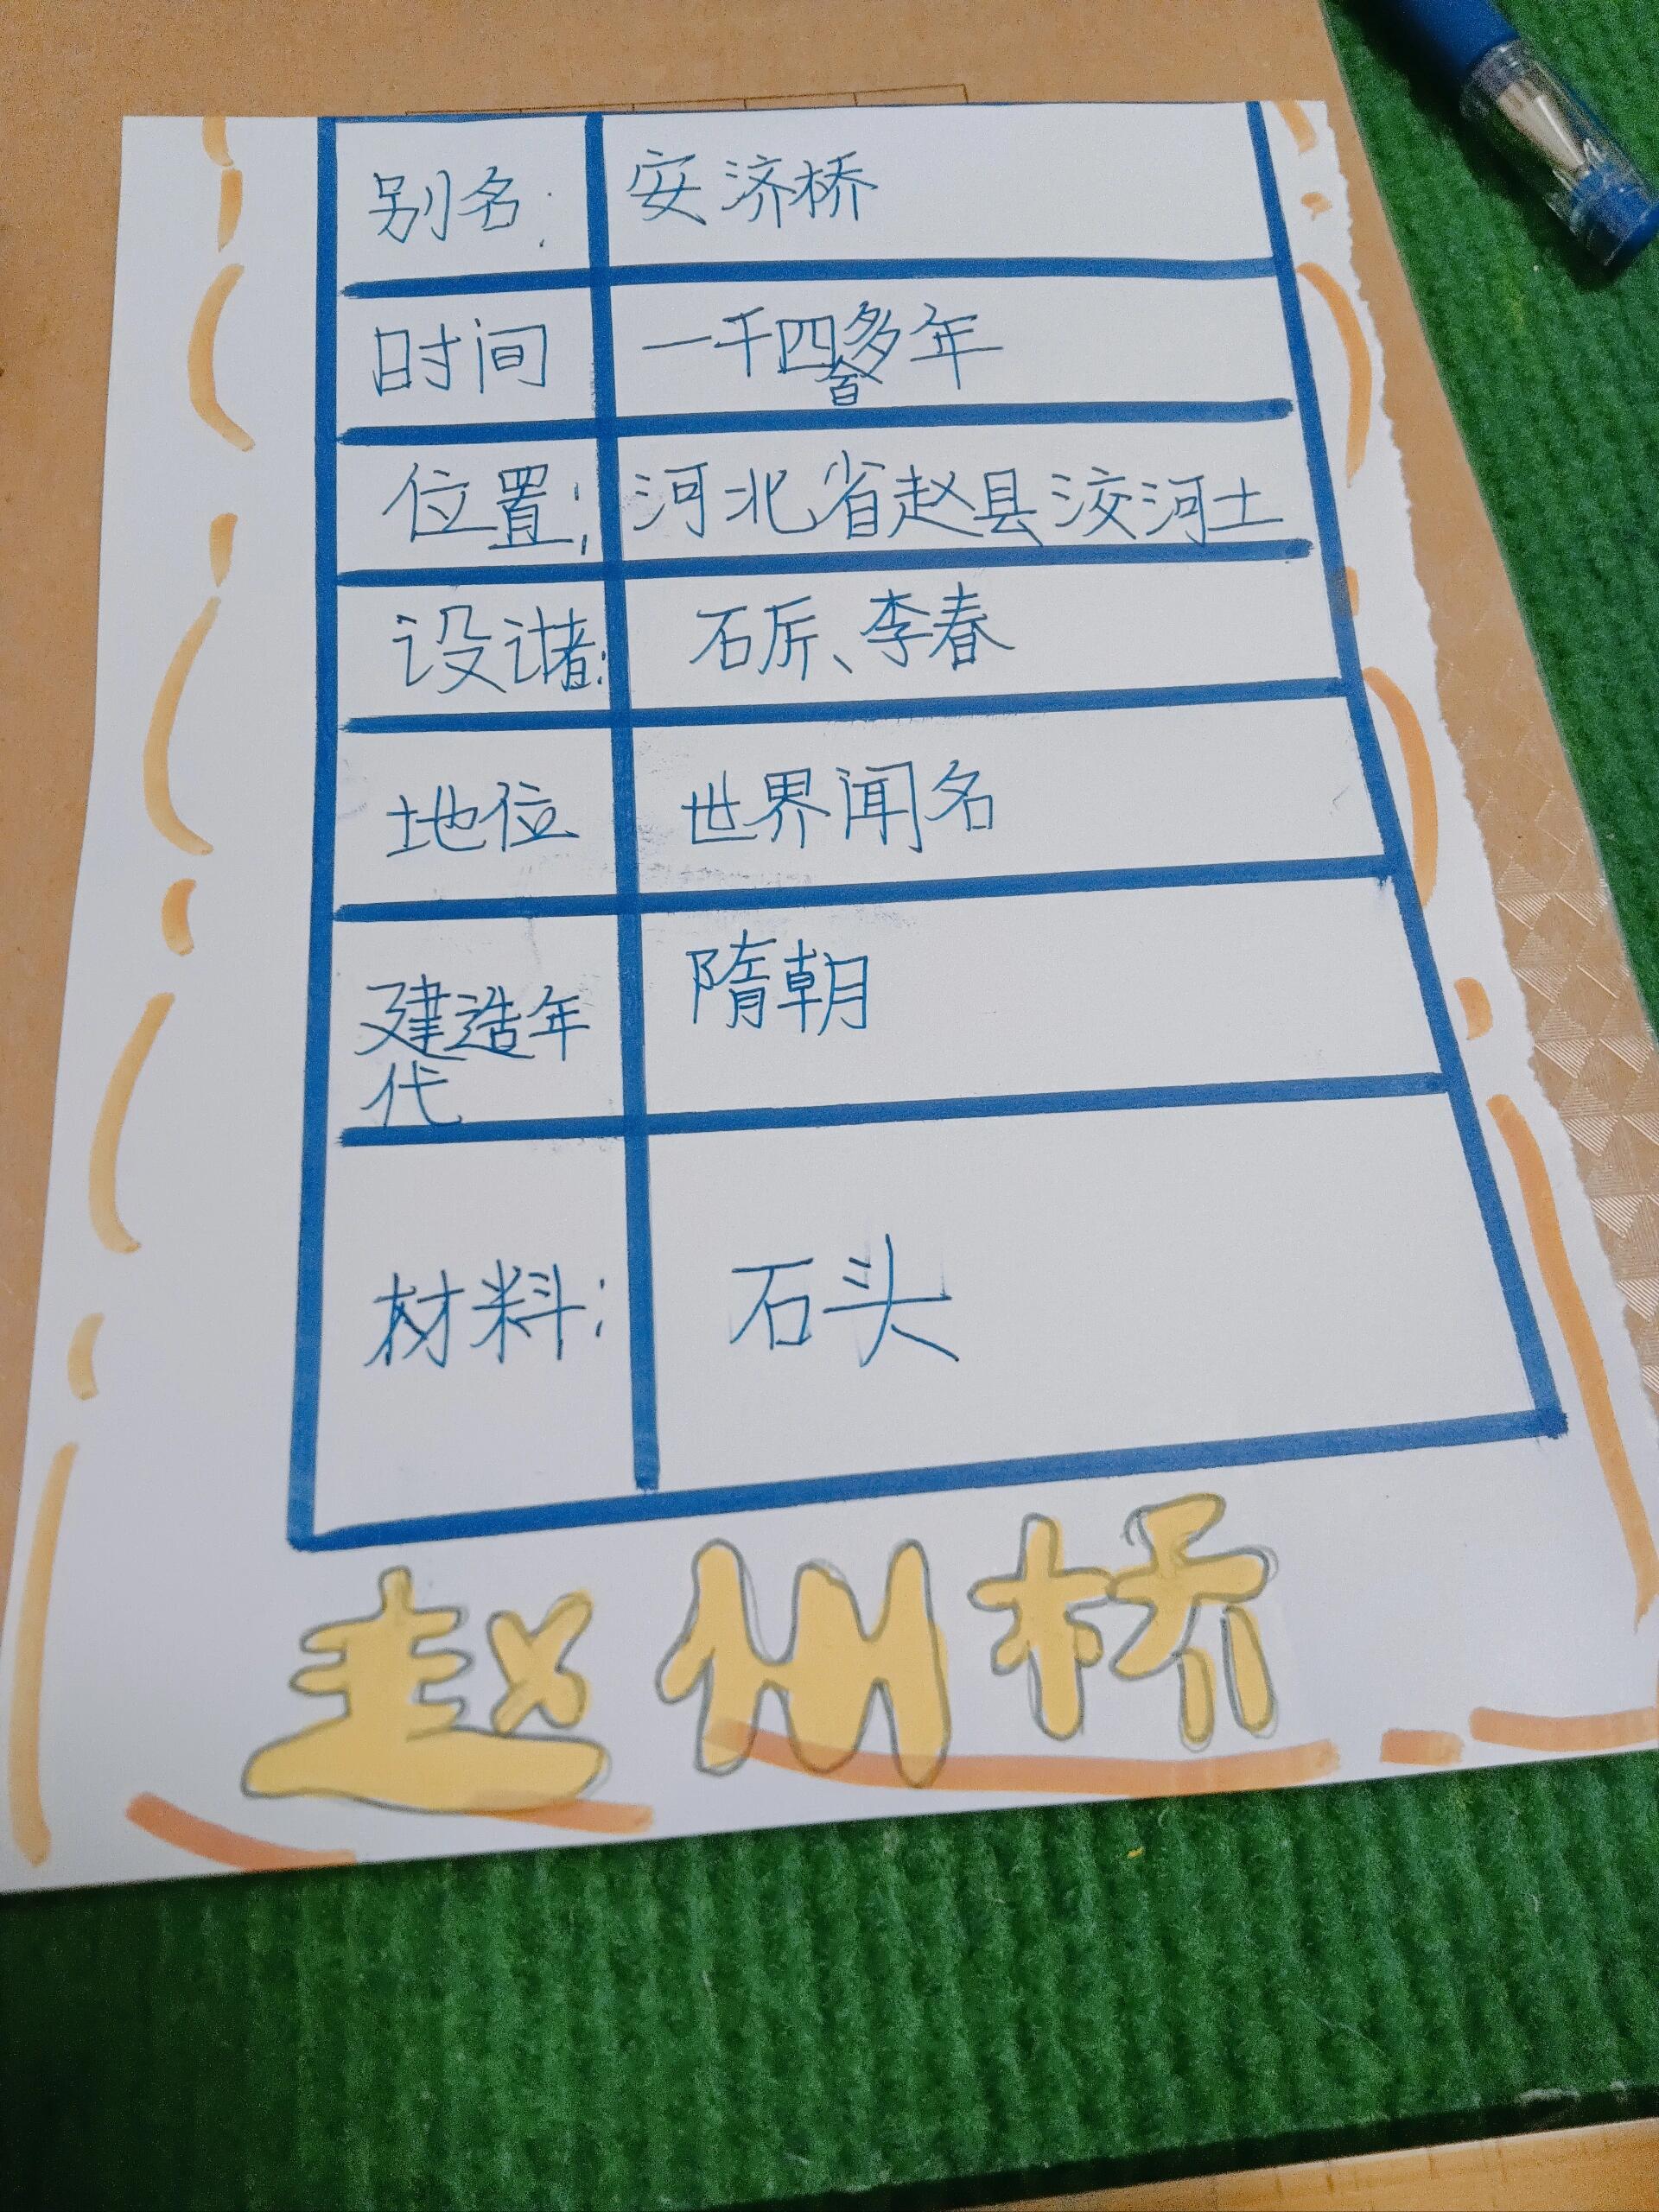 别名: 安济桥
时间 一千四百多年
位置: 河北省赵县洨河上
设计者: 石匠、李春
地位 世界闻名
建造年 隋朝
代
材料: 石头
赵州桥